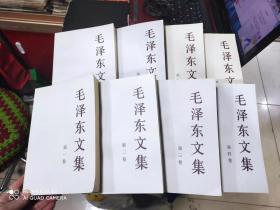 毛泽东文
毛泽东文
毛泽东文
毛泽东文
毛泽东文集
第一卷
毛泽东文集
第二卷
毛泽东文集
第三卷
毛泽东文集
第四卷
AI QUAD CAMERA